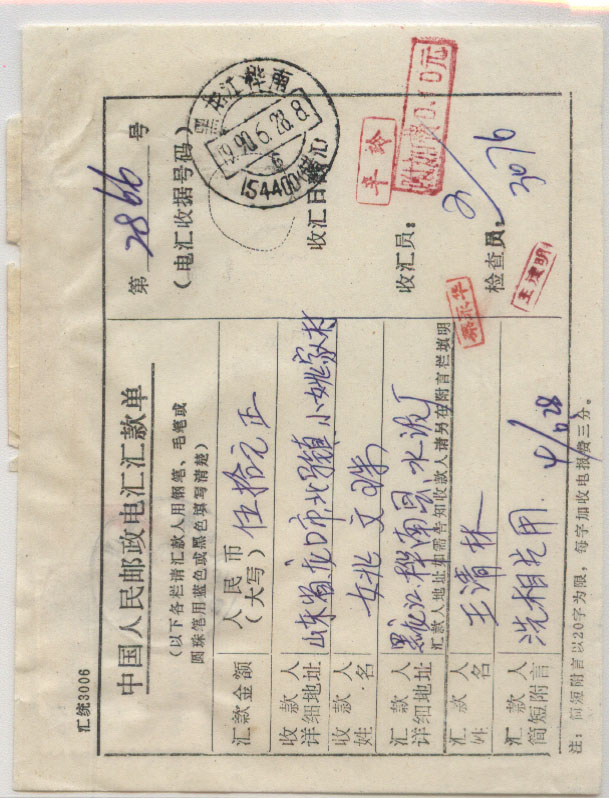 汇统3006
中国人民邮政电汇汇款单
（以下各栏请汇款人用钢笔、毛笔或
圆珠笔用蓝色或黑色填写清楚）
第 2866 号
（电汇收据号码）
黑龙江桦南
1990.6.28.8
6
154400
收汇日
汇款金额
人民币
（大写）
伍拾元正
收款人
详细地址
山东省龙口市北马镇小姚家村
收款人
姓名
姚文
汇款人
详细地址
黑龙江桦南县水泥厂
汇款人地址如需告知收款人请另在附言栏填明
汇款人
姓名
王清林
汇款人
简短附言
洗相片用.
辛玲
附加费0.10元
收汇员：
检查员：
3076
注：简短附言以20字为限，每字加收电报费三分。